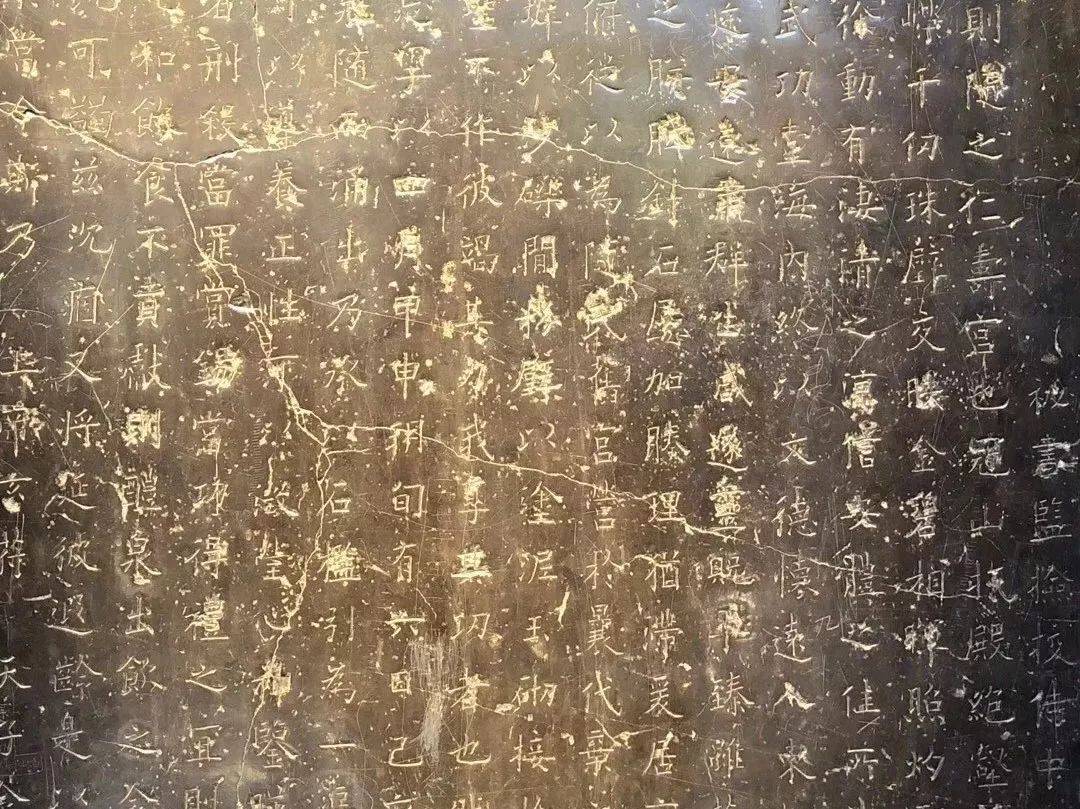 秘書監檢校侍中
則隨之仁壽宮也冠山抗殿絕壑
嶸千仞珠璧交暎金碧相暉照灼
徐動有淒清之涼信安體之佳所
武功壹海內終以文德懷遠人東
遠肅群生咸遂靈貺畢臻雖
之胼胝針石屢加腠理猶滯爰居
俯從以為隨氏舊宮營於曩代棄
墀以沙礫間粉壁以塗泥玉砌接
聖不作彼竭其力我享其功者也
粵以四月甲申朔旬有六日己
隨而涌出乃承以石檻引為一渠
以導養正性可以澂瑩心神鑒
者刑殺當罪賞錫當功得禮之宜則
和飲食不貢獻則醴泉出飲之令
可蠲茲沉痼又將延彼遐齡是以
當今斯乃上帝玄符天子令